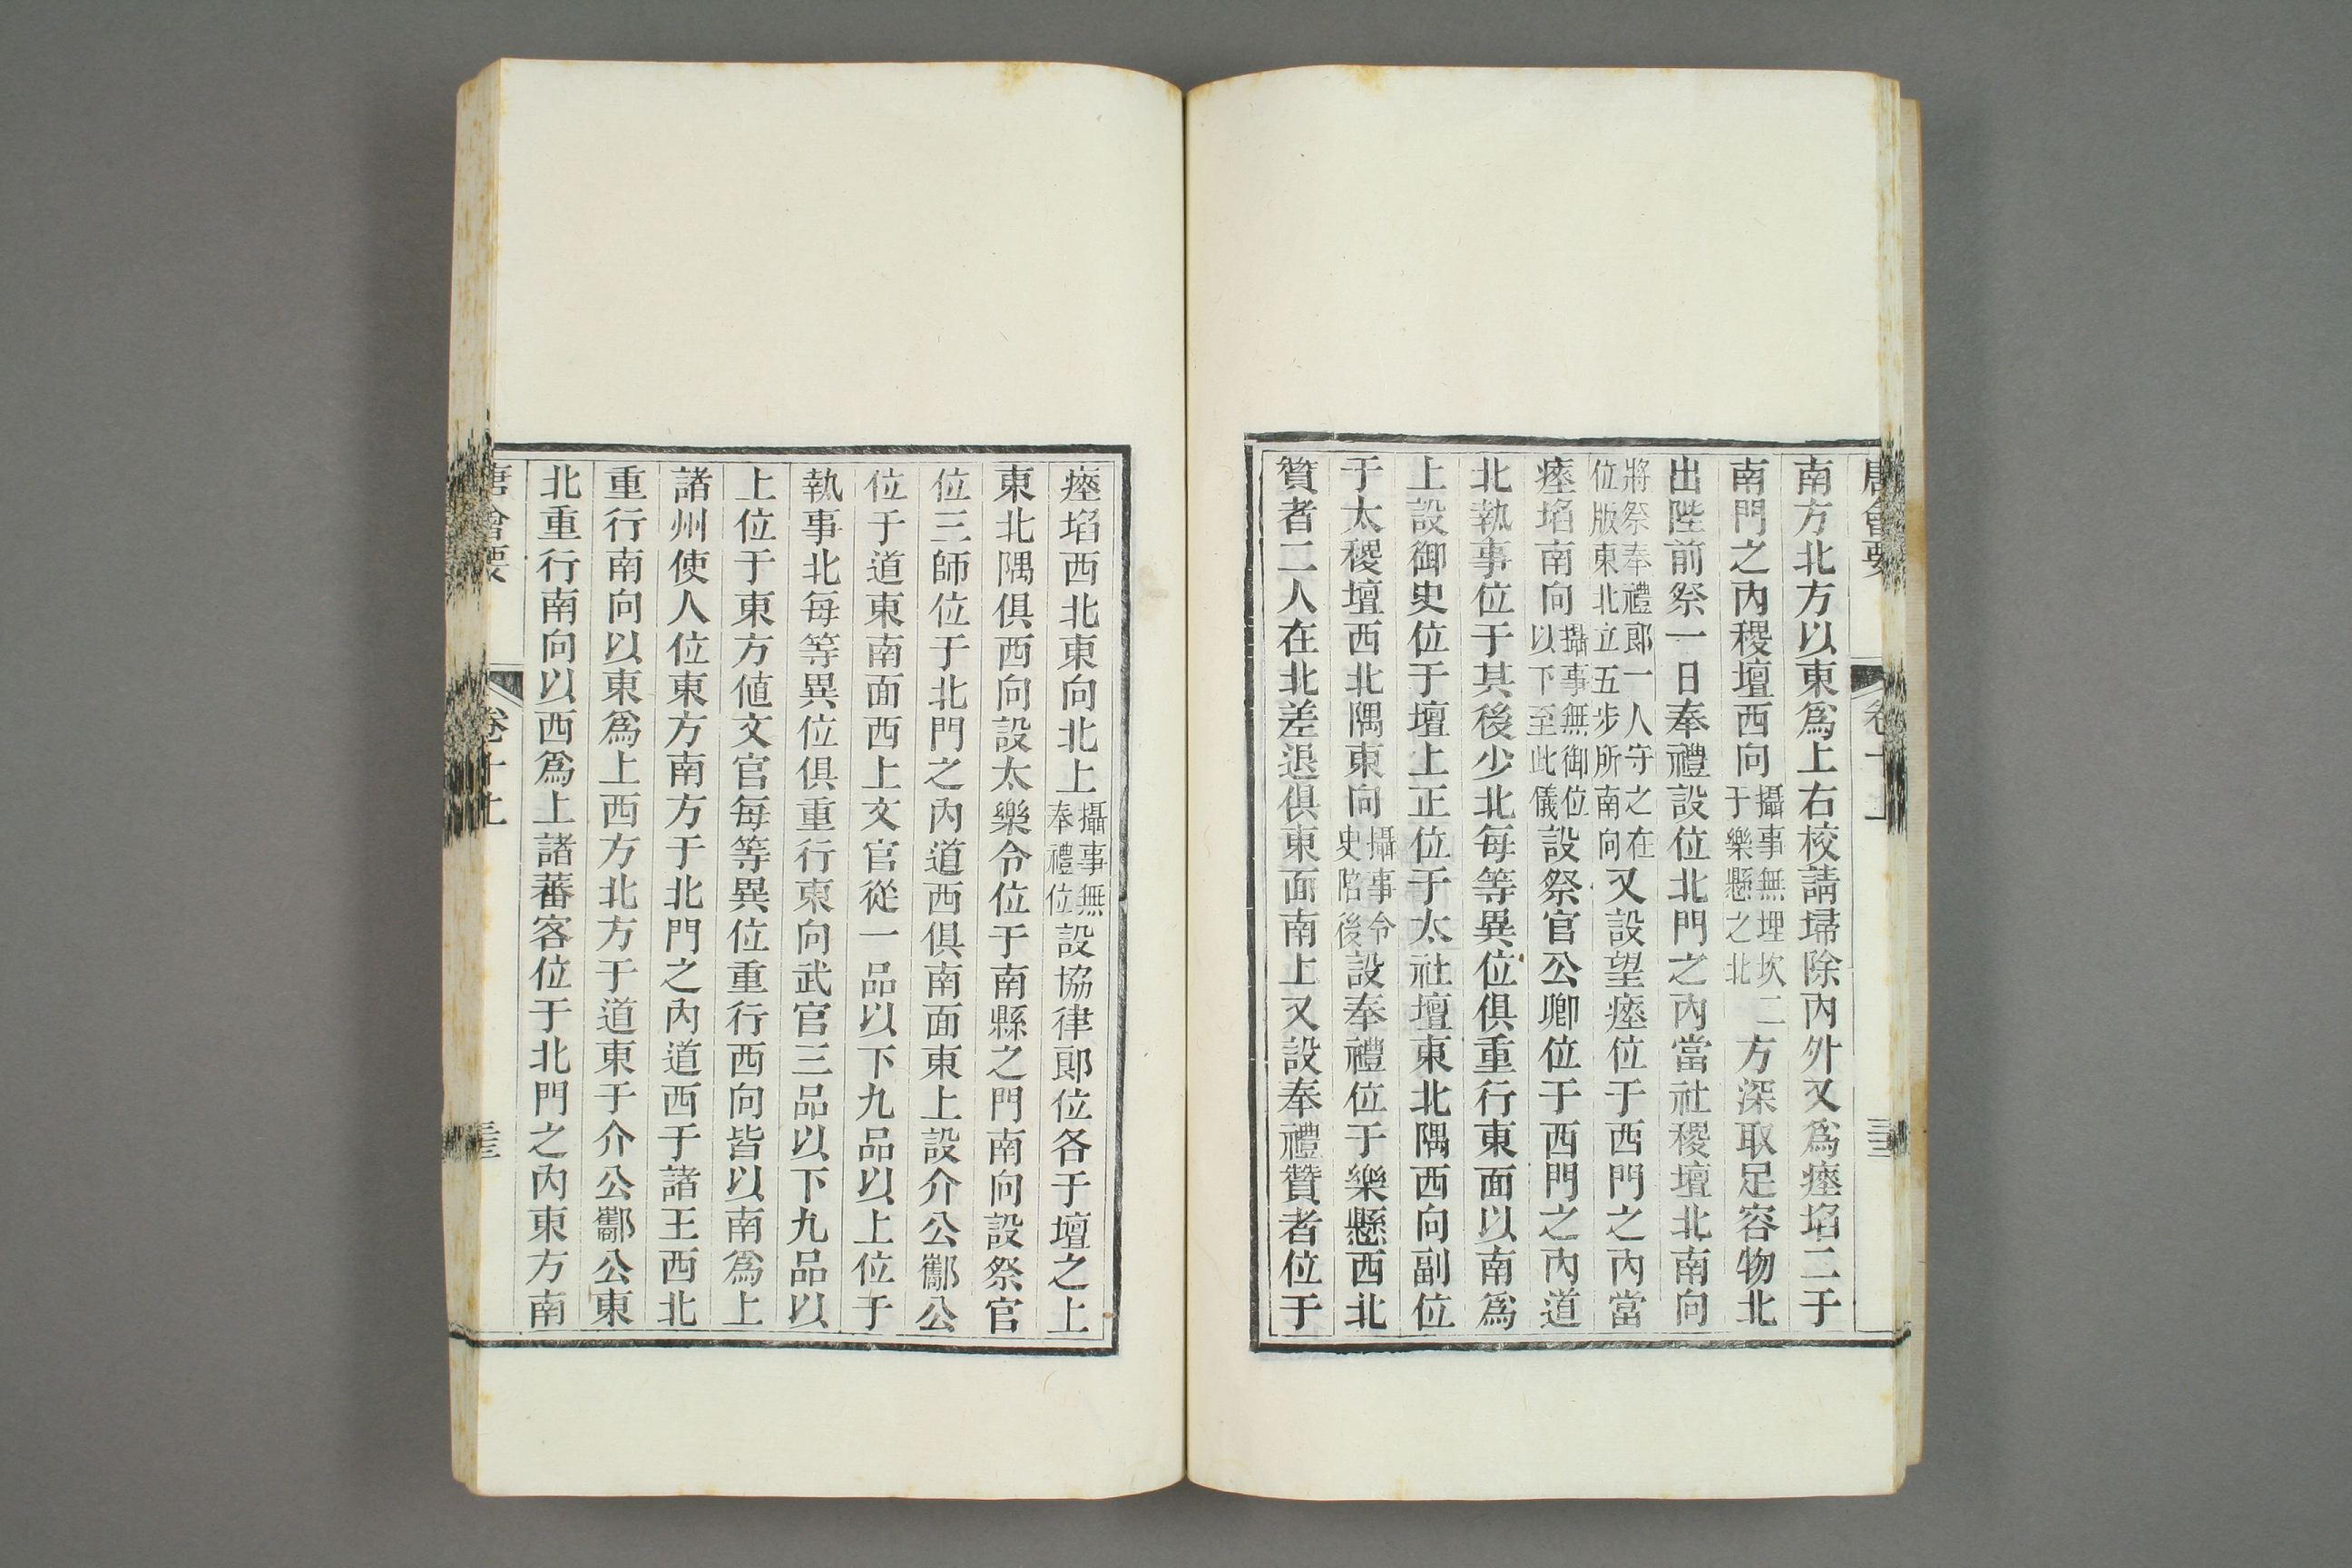 南方北方以東爲上右校請埽除內外又爲瘞埳二于
南門之內稷壇西向攝事無埋坎二于樂懸之北方深取足容物北
出陛前祭一日奉禮設位北門之內當社稷壇北南向
將祭奉禮郞一人守之在位版東北立五步所南向又設望瘞位于西門之內當
瘞埳南向攝事無御位以下至此儀設祭官公卿位于西門之內道
北執事位于其後少北每等異位俱重行東面以南爲
上設御史位于壇上正位于太社壇東北隅西向副位
于太稷壇西北隅東向攝事令史陪後設奉禮位于樂懸西北
贊者二人在北差退俱東面南上又設奉禮贊者位于
瘞埳西北東向北上攝事無奉禮位設協律郞位各于壇之上
東北隅俱西向設太樂令位于南縣之門南向設祭官
位三師位于北門之內道西俱南面東上設介公酅公
位于道東南面西上文官從一品以下九品以上位于
執事北每等異位俱重行東向武官三品以下九品以
上位于東方値文官每等異位重行西向皆以南爲上
諸州使人位東方南方于北門之內道西于諸王西北
重行南向以東爲上西方北方于道東于介公酅公東
北重行南向以西爲上諸蕃客位于北門之內東方南
唐會要
卷十上